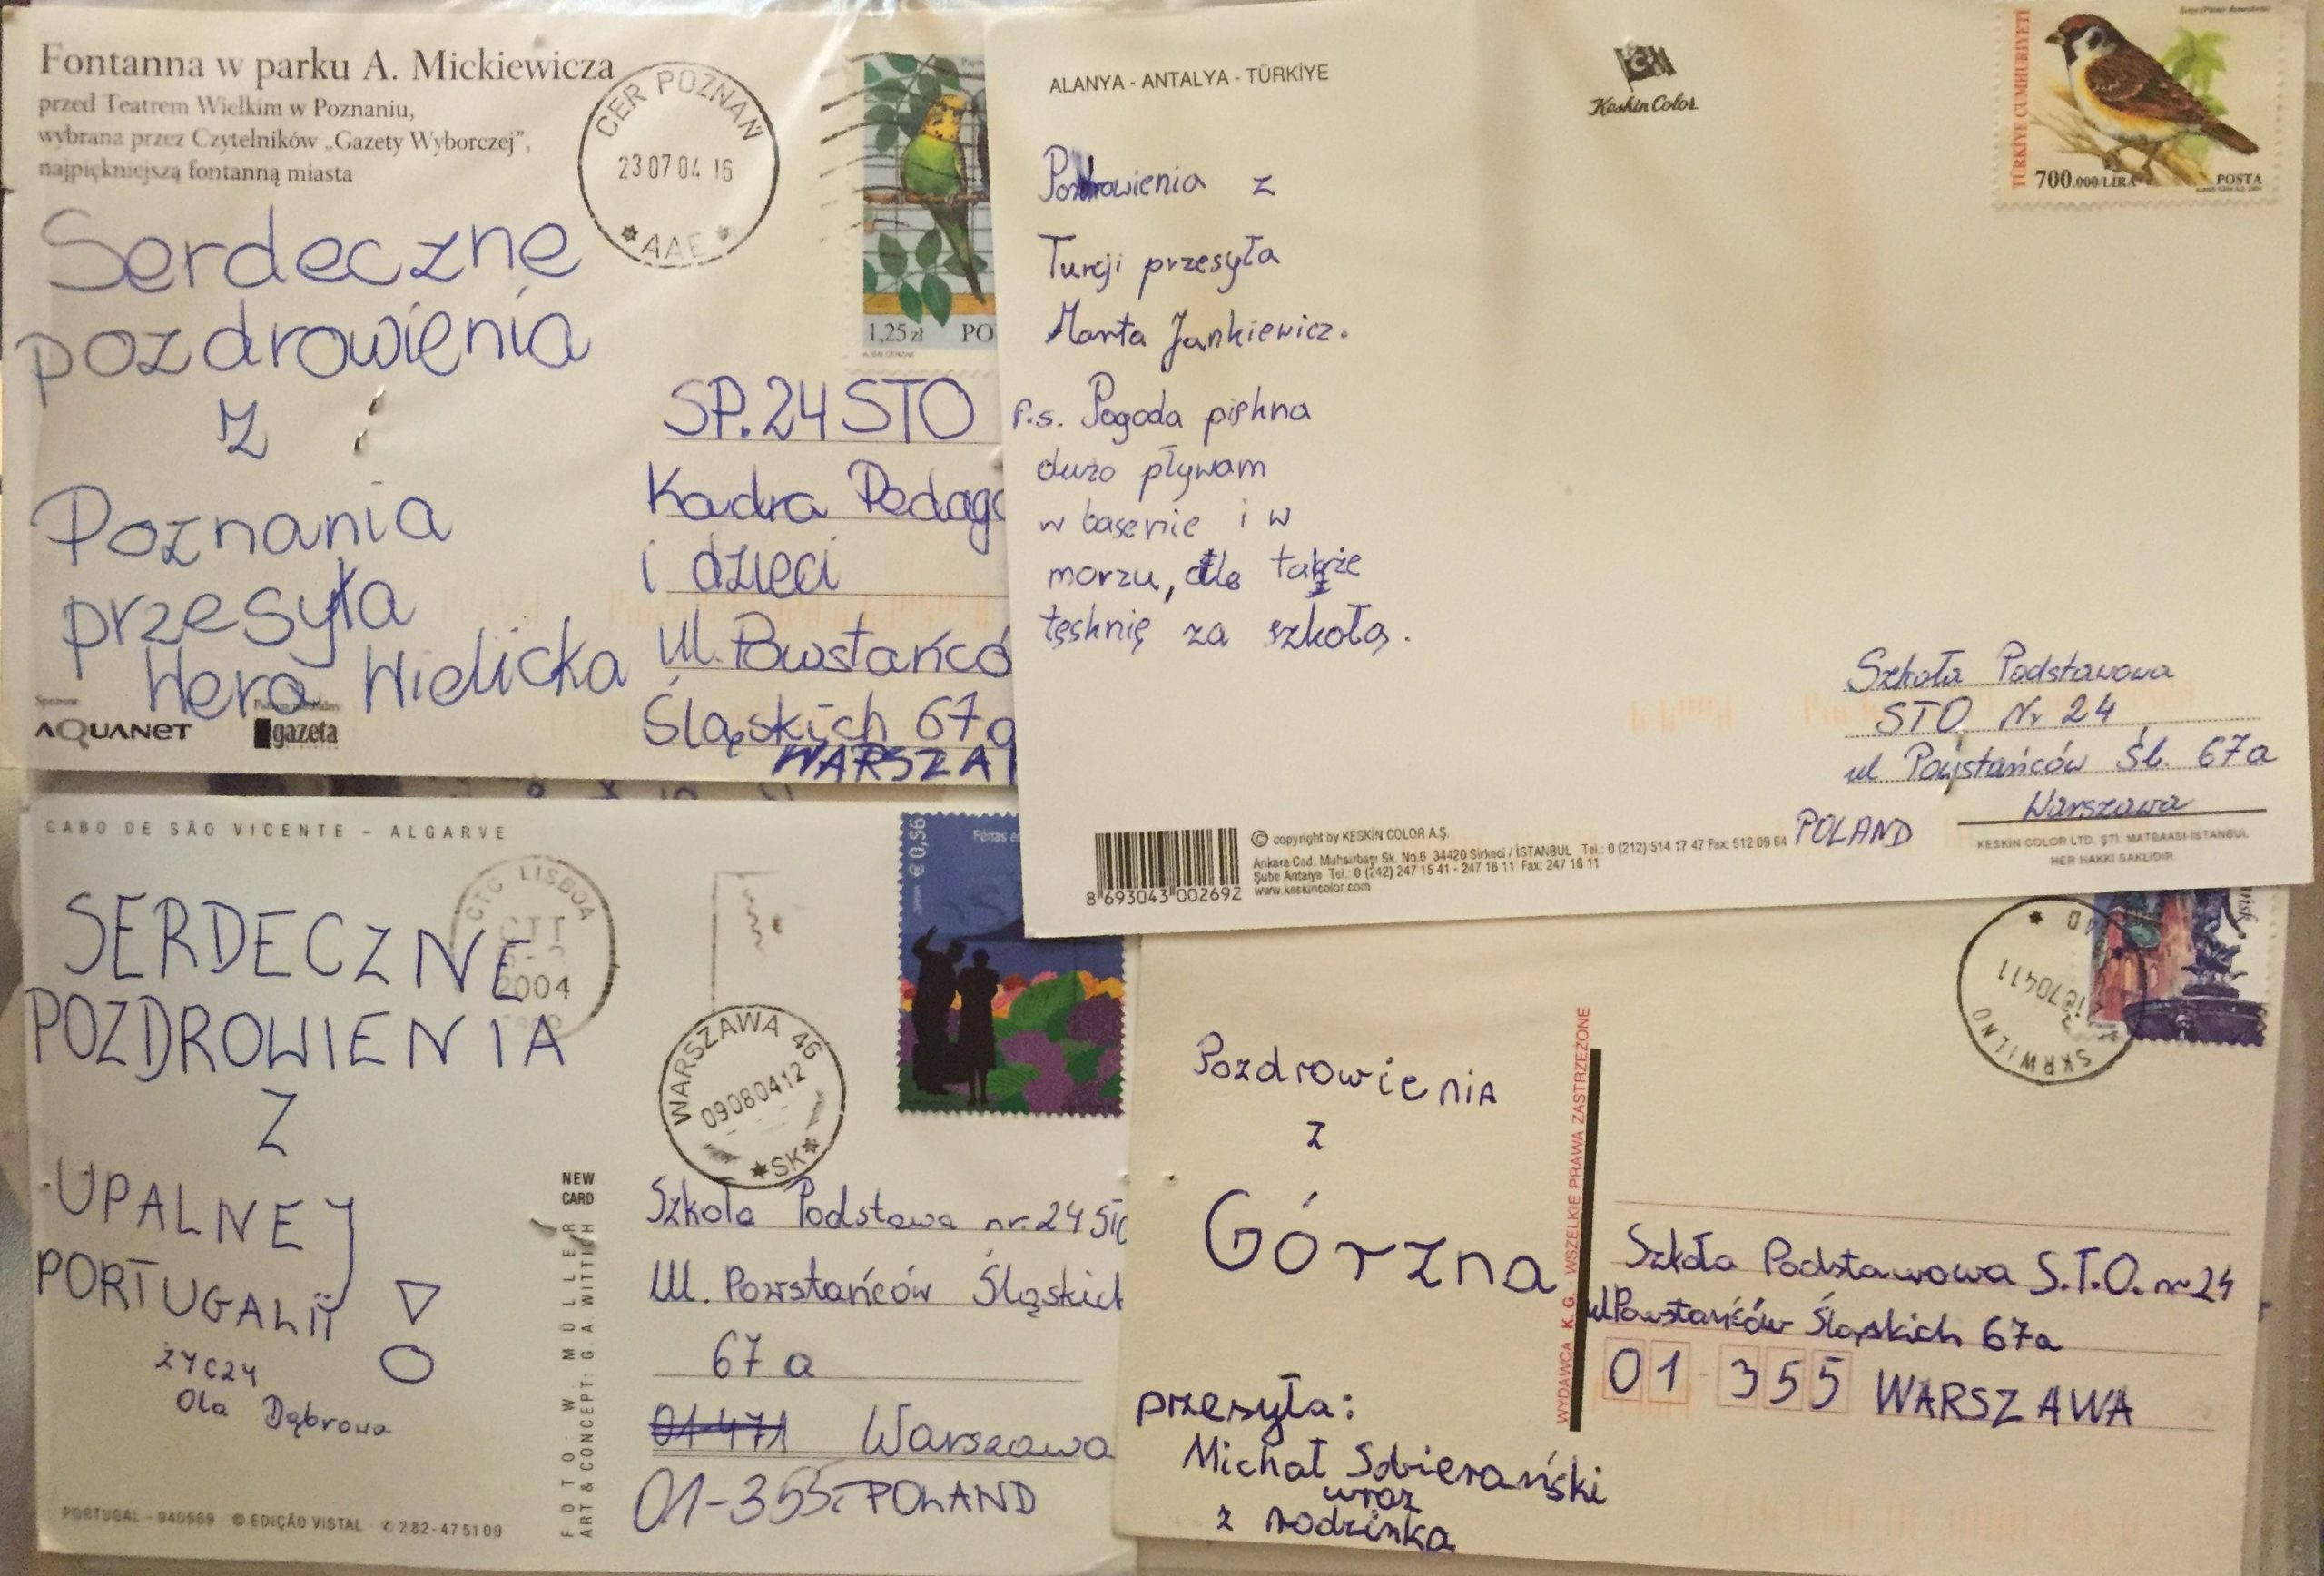 Fontanna w parku A. Mickiewicza
przed Teatrem Wielkim w Poznaniu,
wybrana przez Czytelników „Gazety Wyborczej”,
najpiękniejszą fontanną miasta
CER POZNAŃ
23 07 04 16
* AAE *
1,25 zł PO
Serdeczne
pozdrowienia
z
Poznania
przesyła
Wera Wielicka
Sponsor
AQUANET
gazeta
SP. 24 STO
Kadra Pedago
i dzieci
ul. Powstańcó
Śląskich 67a
WARSZA
ALANYA - ANTALYA - TÜRKİYE
Keskin Color
TÜRKİYE CUMHURİYETİ
700.000/LİRA
POSTA
Pozdrowienia z
Turcji przesyła
Marta Jankiewicz.
P.s. Pogoda piękna
dużo pływam
w basenie i w
morzu, ale także
tęsknię za szkołą.
Szkoła Podstawowa
STO Nr 24
ul Powstańców Śl. 67a
Warszawa
POLAND
8 693043 002692
© copyright by KESKİN COLOR A.Ş.
Ankara Cad. Muhsirbaşı Sk. No.6 34420 Sirkeci / İSTANBUL Tel.: 0 (212) 514 17 47 Fax: 512 09 64
Şube Antalya Tel.: 0 (242) 247 15 41 - 247 16 11 Fax: 247 16 11
www.keskincolor.com
KESKİN COLOR LTD. ŞTİ. MATBAASI-İSTANBUL
HER HAKKI SAKLIDIR
CABO DE SÃO VICENTE – ALGARVE
CTC LISBOA
CTT
2004
WARSZAWA 46
09080412
*SK*
€ 0,56
Férias e
SERDECZNE
POZDROWIENIA
Z
UPALNEJ
PORTUGALII
!
ŻYCZY
Ola Dąbrowa
PORTUGAL – 940569 © EDIÇÃO VISTAL ✆ 282-475109
NEW
CARD
FOTO: W. MÜLLER
ART & CONCEPT: G.A. WITTICH
Szkoła Podstawa nr. 24 STO
Ul. Powstańców Śląskich
67 a
01-471 Warszawa
01-355. POLAND
SKRWILNO
Pozdrowienia
z
Górzna
przesyła:
Michał Sobierański
wraz
z rodzinka
WYDAWCA K. G. - WSZELKIE PRAWA ZASTRZEŻONE
Szkoła Podstawowa S.T.O. nr 24
ul Powstańców Śląskich 67a
01 355 WARSZAWA